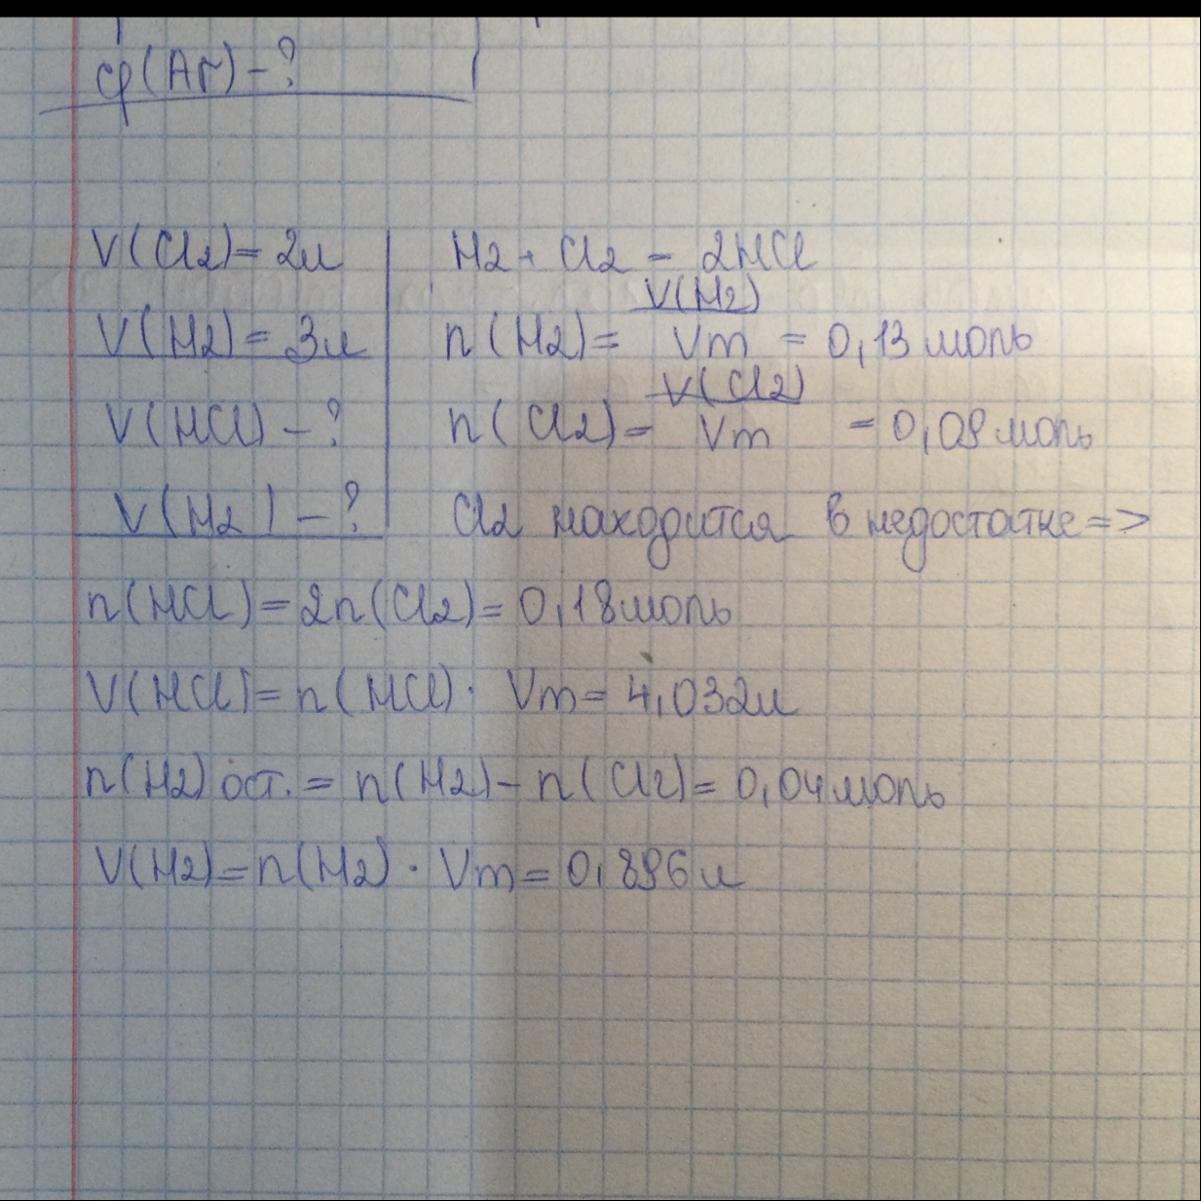 φ(Ar) - ?
V(Cl2) = 2л
V(H2) = 3л
V(HCl) - ?
V(H2) - ?
H2 + Cl2 = 2HCl
n(H2) = V(H2)/Vm = 0,13 моль
n(Cl2) = V(Cl2)/Vm = 0,09 моль
Cl2 находится в недостатке =>
n(HCl) = 2n(Cl2) = 0,18 моль
V(HCl) = n(HCl) · Vm = 4,032л
n(H2) ост. = n(H2) - n(Cl2) = 0,04 моль
V(H2) = n(H2) · Vm = 0,896 л